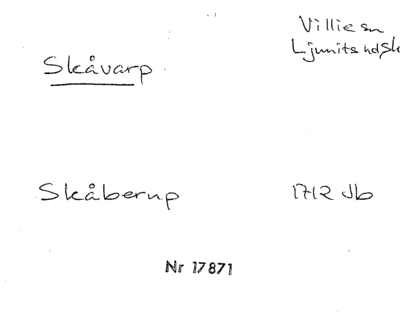 Villie sn
Ljunits hd, Sk
Skåvarp
Skåberup 1712 Jb
Nr 17871